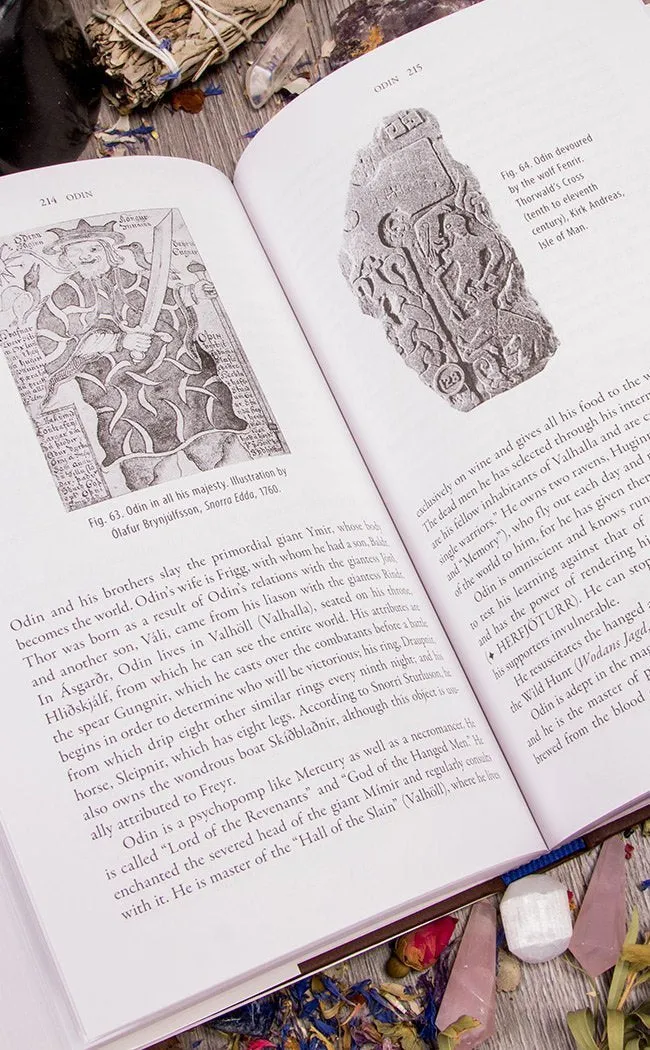 214 ODIN
Fig. 63. Odin in all his majesty. Illustration by
Ólafur Brynjúlfsson, Snorra Edda, 1760.
Odin and his brothers slay the primordial giant Ymir, whose body
becomes the world. Odin's wife is Frigg, with whom he had a son, Baldr.
Thor was born as a result of Odin's relations with the giantess Jörð,
and another son, Váli, came from his liason with the giantess Rindr.
In Ásgarðr, Odin lives in Valhöll (Valhalla), seated on his throne,
Hliðskjálf, from which he can see the entire world. His attributes are
the spear Gungnir, which he casts over the combatants before a battle
begins in order to determine who will be victorious; his ring, Draupnir,
from which drip eight other similar rings every ninth night; and his
horse, Sleipnir, which has eight legs. According to Snorri Sturluson, he
also owns the wondrous boat Skíðblaðnir, although this object is usu-
ally attributed to Freyr.
Odin is a psychopomp like Mercury as well as a necromancer. He
is called "Lord of the Revenants" and "God of the Hanged Men." He
enchanted the severed head of the giant Mímir and regularly consults
with it. He is master of the "Hall of the Slain" (Valhöll), where he lives
ODIN 215
Fig. 64. Odin devoured
by the wolf Fenrir.
Thorwald's Cross
(tenth to eleventh
century), Kirk Andreas,
Isle of Man.
128
exclusively on wine and gives all his food to the
The dead men he has selected through his
are his fellow inhabitants of Valhalla and are
single warriors." He owns two ravens, Huginn
and "Memory"), who fly out each day and
of the world to him, for he has given them
Odin is omniscient and knows
to test his learning against that of
and has the power of rendering his
(✦ HERFJÖTURR). He can stop
his supporters invulnerable.
He resuscitates the hanged
the Wild Hunt (Wodans Jagd,
Odin is adept in the
and he is the master of
brewed from the blood